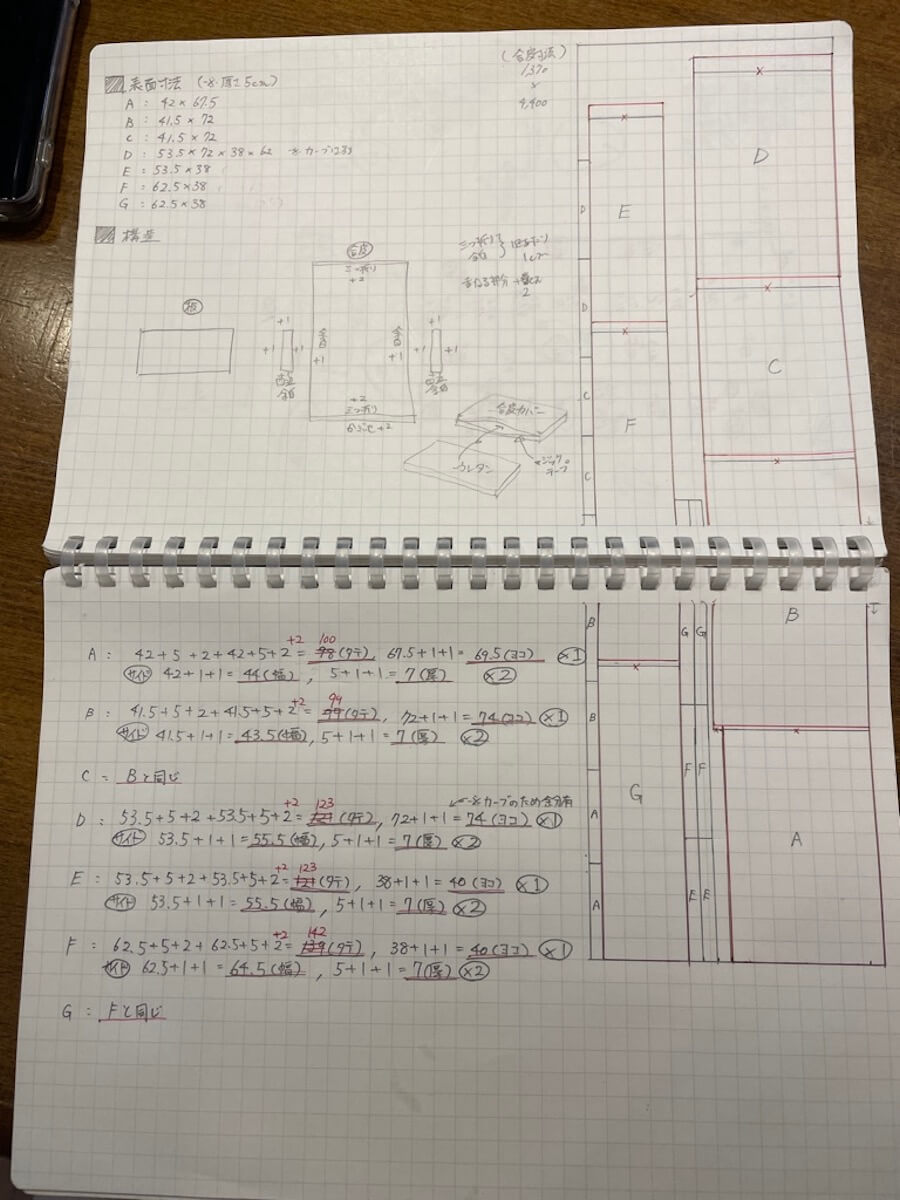 表面寸法 (※厚さ5cm)
A : 42×67.5
B : 41.5×72
C : 41.5×72
D : 53.5×72×38×62 ※カーブはあり
E : 53.5×38
F : 62.5×38
G : 62.5×38
構造
(合皮寸法)
1,370
×
4,400
板
合皮
三つ折り
+2
余白
+1
余白
+1
+2
三つ折り
かぶせ+2
+1
+1
+1
余白
+1
+1
+1
余白
三つ折り
余白
重ねる部分
2
合皮カバー
ウレタン
テープ
D
D
C
C
E
F
D
C
A : 42+5+2+42+5+2+2= 98 100 (タテ), 67.5+1+1=69.5(ヨコ) ×1
サイド 42+1+1=44(幅), 5+1+1=7(厚) ×2
B : 41.5+5+2+41.5+5+2+2= 99 (タテ), 72+1+1=74(ヨコ) ×1
サイド 41.5+1+1=43.5(幅), 5+1+1=7(厚) ×2
C : Bと同じ
※カーブのため余分有
D : 53.5+5+2+53.5+5+2+2= 121 123 (タテ), 72+1+1=74(ヨコ) ×1
サイド 53.5+1+1=55.5(幅), 5+1+1=7(厚) ×2
E : 53.5+5+2+53.5+5+2+2= 121 123 (タテ), 38+1+1=40(ヨコ) ×1
サイド 53.5+1+1=55.5(幅), 5+1+1=7(厚) ×2
F : 62.5+5+2+62.5+5+2+2= 139 142 (タテ), 38+1+1=40(ヨコ) ×1
サイド 62.5+1+1=64.5(幅), 5+1+1=7(厚) ×2
G : Fと同じ
B
B
A
A
G
G
G
F
F
E
E
B
A